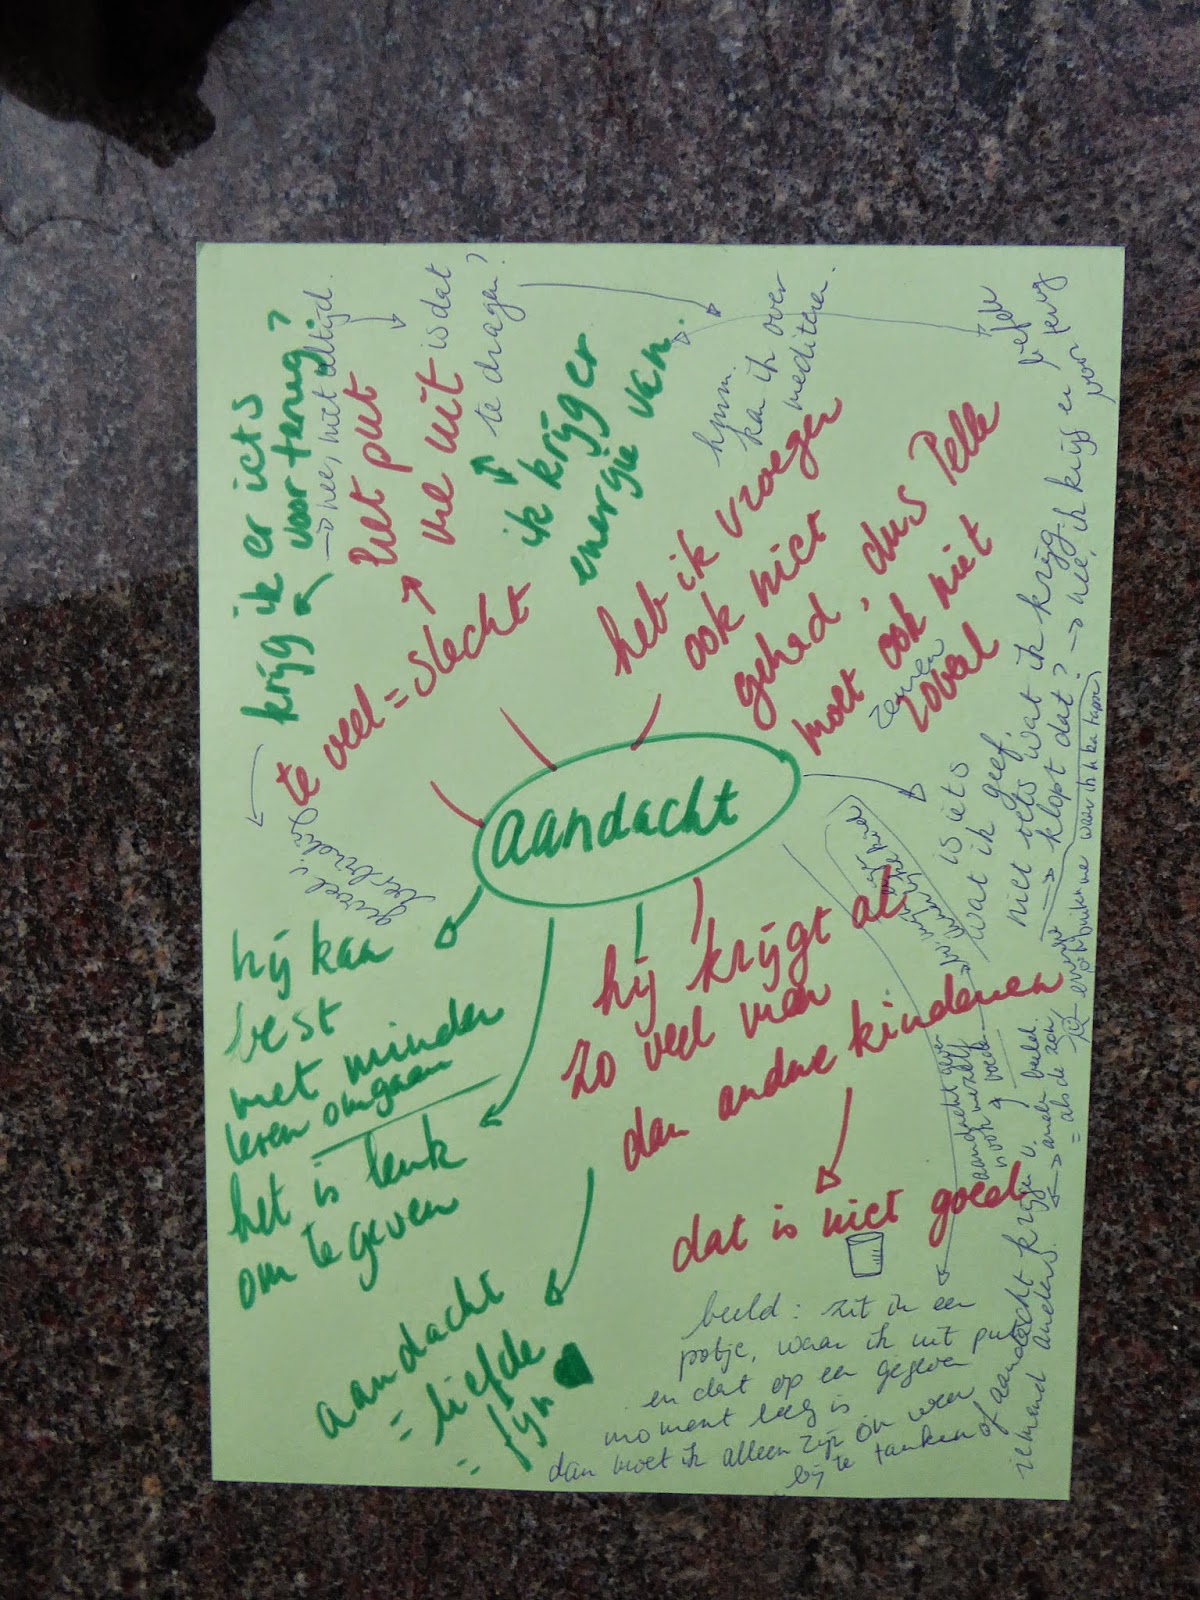 krijg ik er iets
voor terug?
→ nee, niet altijd.
te veel = slecht
het put
me uit
is dat
te dragen?
ik krijg er
energie van.
hmm.
kan ik over
mediteren.
heb ik vroeger
ook niet
gehad, dus Pelle
moet ook niet
zoveel
aandacht
gevoel v
hij kan
best
met minder
leren omgaan
het is leuk
om te geven
aandacht
= liefde
= fijn
hij krijgt al
zo veel meer
dan andere kinderen
dat is niet goed
is iets
wat ik geef.
niet iets wat ik krijg.
→ klopt dat? → nee, ik krijg er
liefde
voor terug
aandacht geven
→ ander beeld.
= als de zon
beeld: zit in een
potje, waar ik uit put
en dat op een gegeven
moment leeg is
dan moet ik alleen zijn om weer
bij te tanken of aandacht krijgen v.
iemand anders.